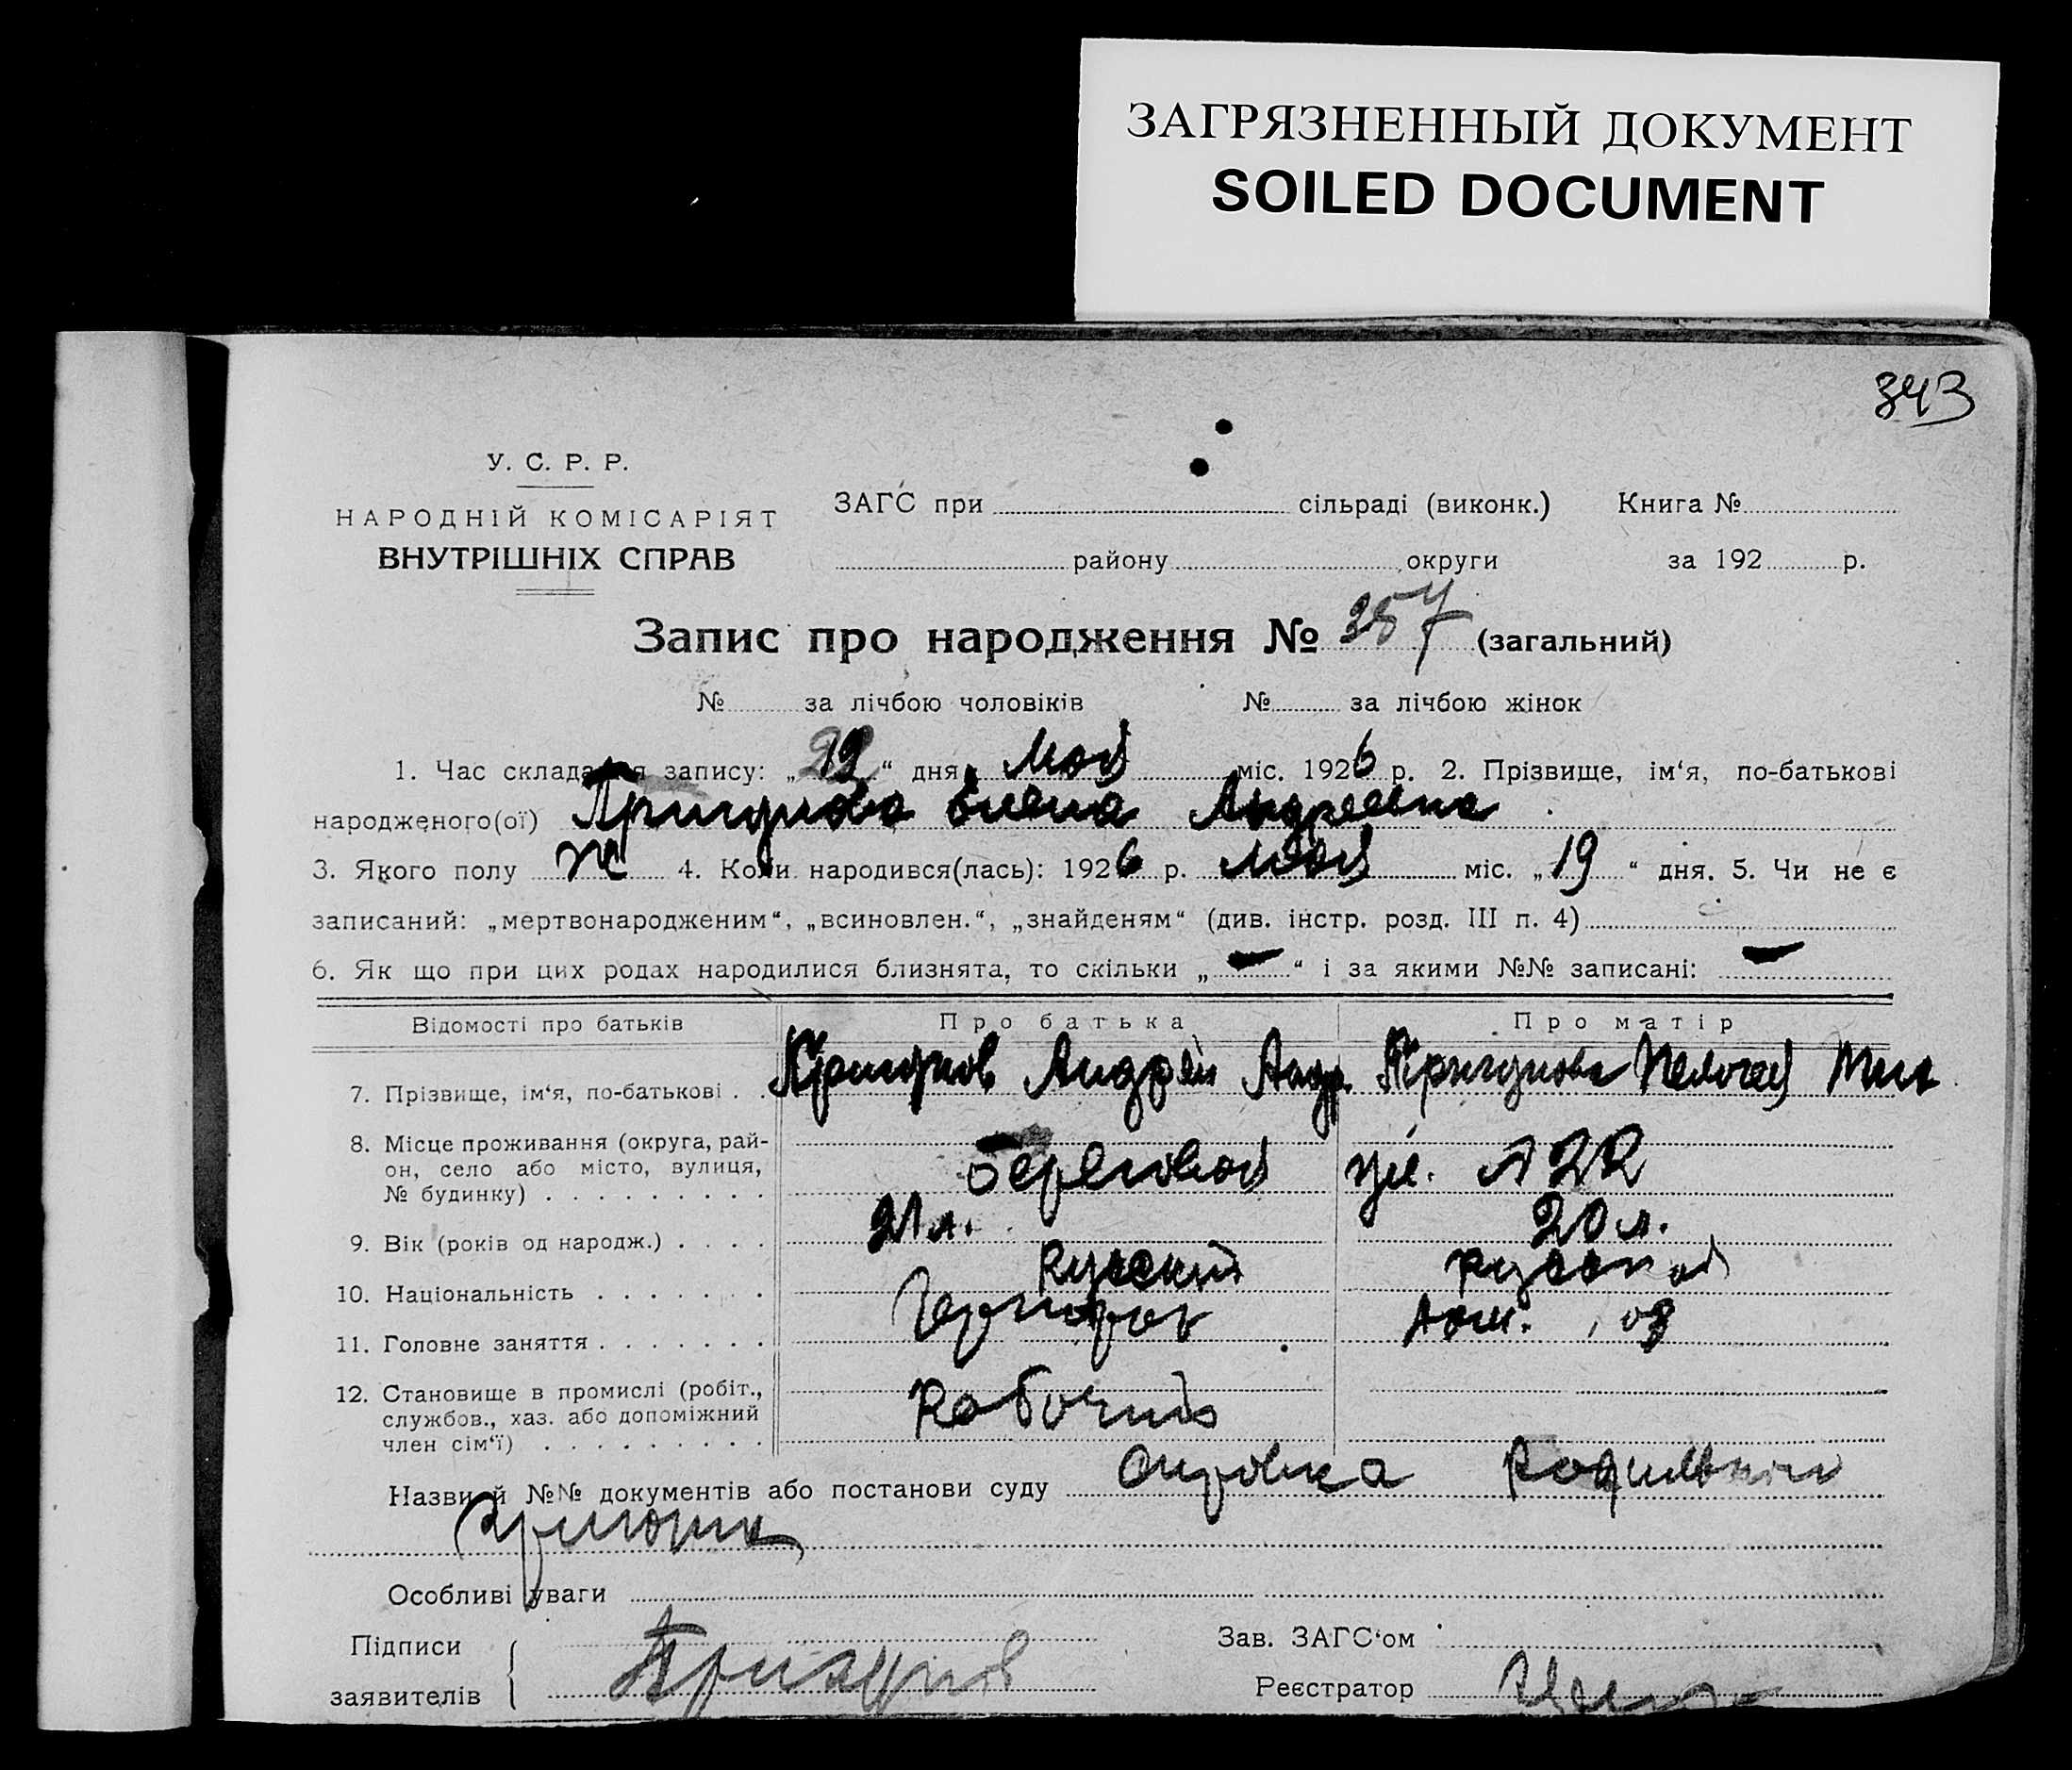 ЗАГРЯЗНЕННЫЙ ДОКУМЕНТ
SOILED DOCUMENT
343
У. С. Р. Р.
НАРОДНІЙ КОМІСАРІЯТ
ВНУТРІШНІХ СПРАВ
ЗАГС при сільраді (виконк.) Книга №
району округи за 192 р.
Запис про народження № 357 (загальний)
№ за лічбою чоловіків № за лічбою жінок
1. Час складання запису: „19“ дня мая міс. 1926 р. 2. Прізвище, ім‘я, по-батькові
народженого(ої) Пригунова Елена Андреевна
3. Якого полу ж 4. Коли народився(лась): 1926 р. мая міс. „19“ дня. 5. Чи не є
записаний: „мертвонародженим“, „всиновлен.“, „знайденям“ (див. інстр. розд. III п. 4)
6. Як що при цих родах народилися близнята, то скільки „—“ і за якими №№ записані: —
Відомості про батьків Про батька Про матір
7. Прізвище, ім‘я, по-батькові Пригунов Андрей Андр. Пригунова Пелагея
8. Місце проживання (округа, рай-
он, село або місто, вулиця,
№ будинку) Береговая ул.
9. Вік (років од народж.) 21 л. 20 л.
10. Національність Русский русская
11. Головне заняття Дом. хоз
12. Становище в промислі (робіт.,
службов., хаз. або допоміжний
член сім‘ї) Рабочий
Назви й №№ документів або постанови суду Справка Родильного
приюта
Особливі уваги
Підписи
заявителів Пригунов
Зав. ЗАГС‘ом
Реєстратор